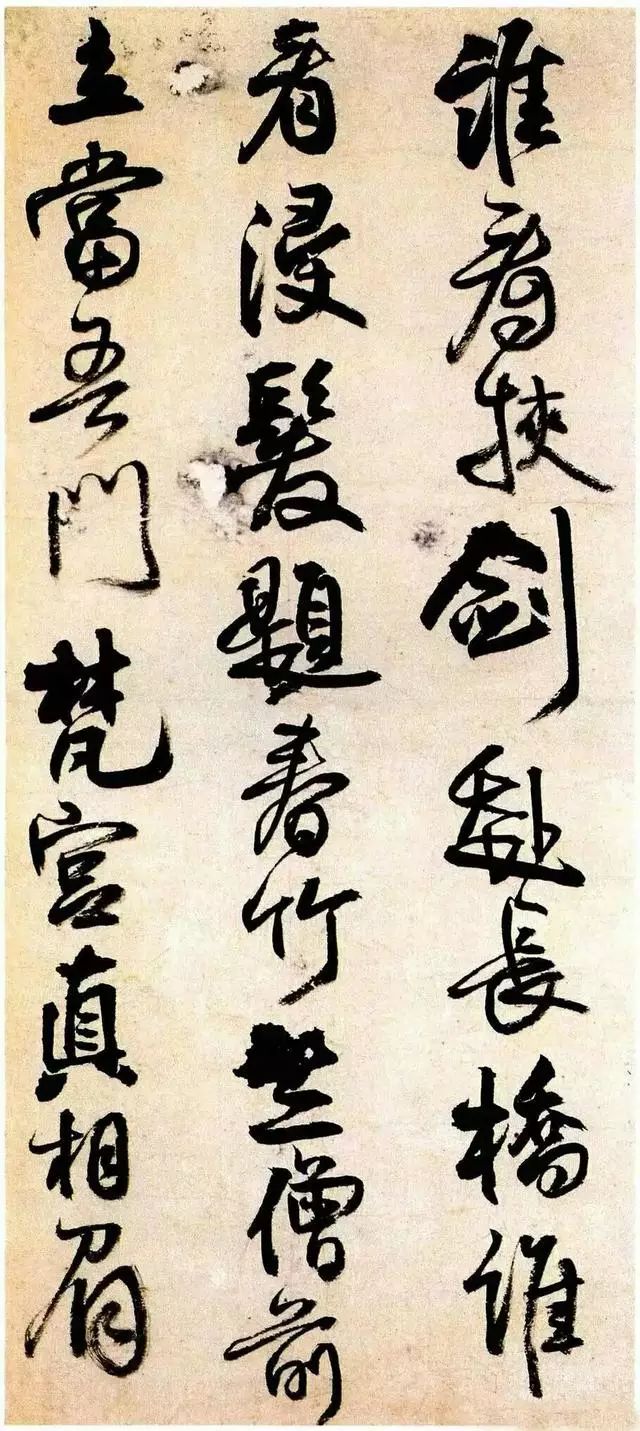 誰看挾劍赴長橋誰
看浸髮題春竹竺僧前
立當吾門梵宮真相眉